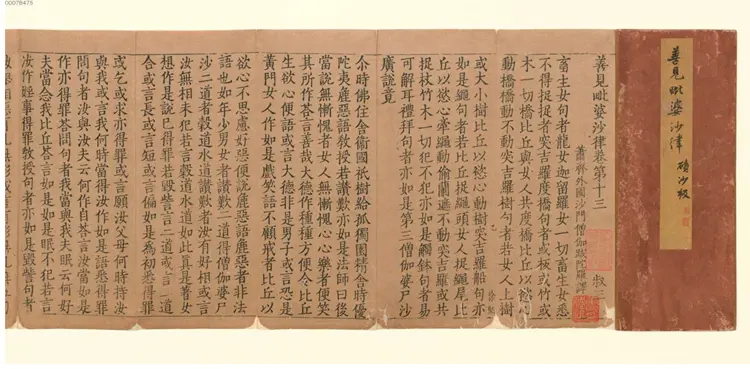 00078475
善見毗婆沙律 磧沙版
善見毗婆沙律卷第十三
叔三
蕭齊外國沙門僧伽跋陀羅譯
畜生女句者龍女迦留羅女一切畜生女悉
不得捉捉者突吉羅度橋句者或板或竹或
木一切橋比丘與女人共度橋比丘以慾心
動橋橋動不動突吉羅樹句者若女人上樹
或大小樹比丘以慾心動樹突吉羅船句亦
如是繩句者若比丘捉繩頭女人捉繩尾比
丘以慾心牽繩動偷蘭遮不動突吉羅或共
捉杖竹木一切犯不犯亦如是觸鉢句者易
可解耳禮拜句者亦如是第三僧伽婆尸沙
廣說竟
尒時佛住舍衛國祇樹給孤獨園精舍時優
陀夷麁惡語教授若讚歎亦如是法師曰後
當說無慚愧者女人無慚愧心心樂者便笑
其所作荅言善哉大德作種種方便令比丘
生欲心便語或言大德非是男子或言恐是
黃門女人作如是戲笑語不顧戒者比丘以
欲心不思慮好惡便說麁惡語麁惡者非法
語也如年少男女者讚歎二道得僧伽婆尸
沙二道者穀道水道讚歎者汝有好相或言
汝無相未犯若言穀道水道如此真是善女
想作是說已得罪若毀呰言二道或言一道
合或言長或言短或言偏如是為初悉得罪
或乞或求亦得罪或言願汝父母何時持汝
與我或言我何時當得汝作如是語悉得罪
問句者汝與汝夫云何作自荅言汝當如是
作亦得罪荅問句者我當與我夫眠云何好
夫當念我比丘荅言作如是如是眠不犯若言
汝作婬事得罪教授句者亦如是毀呰句者